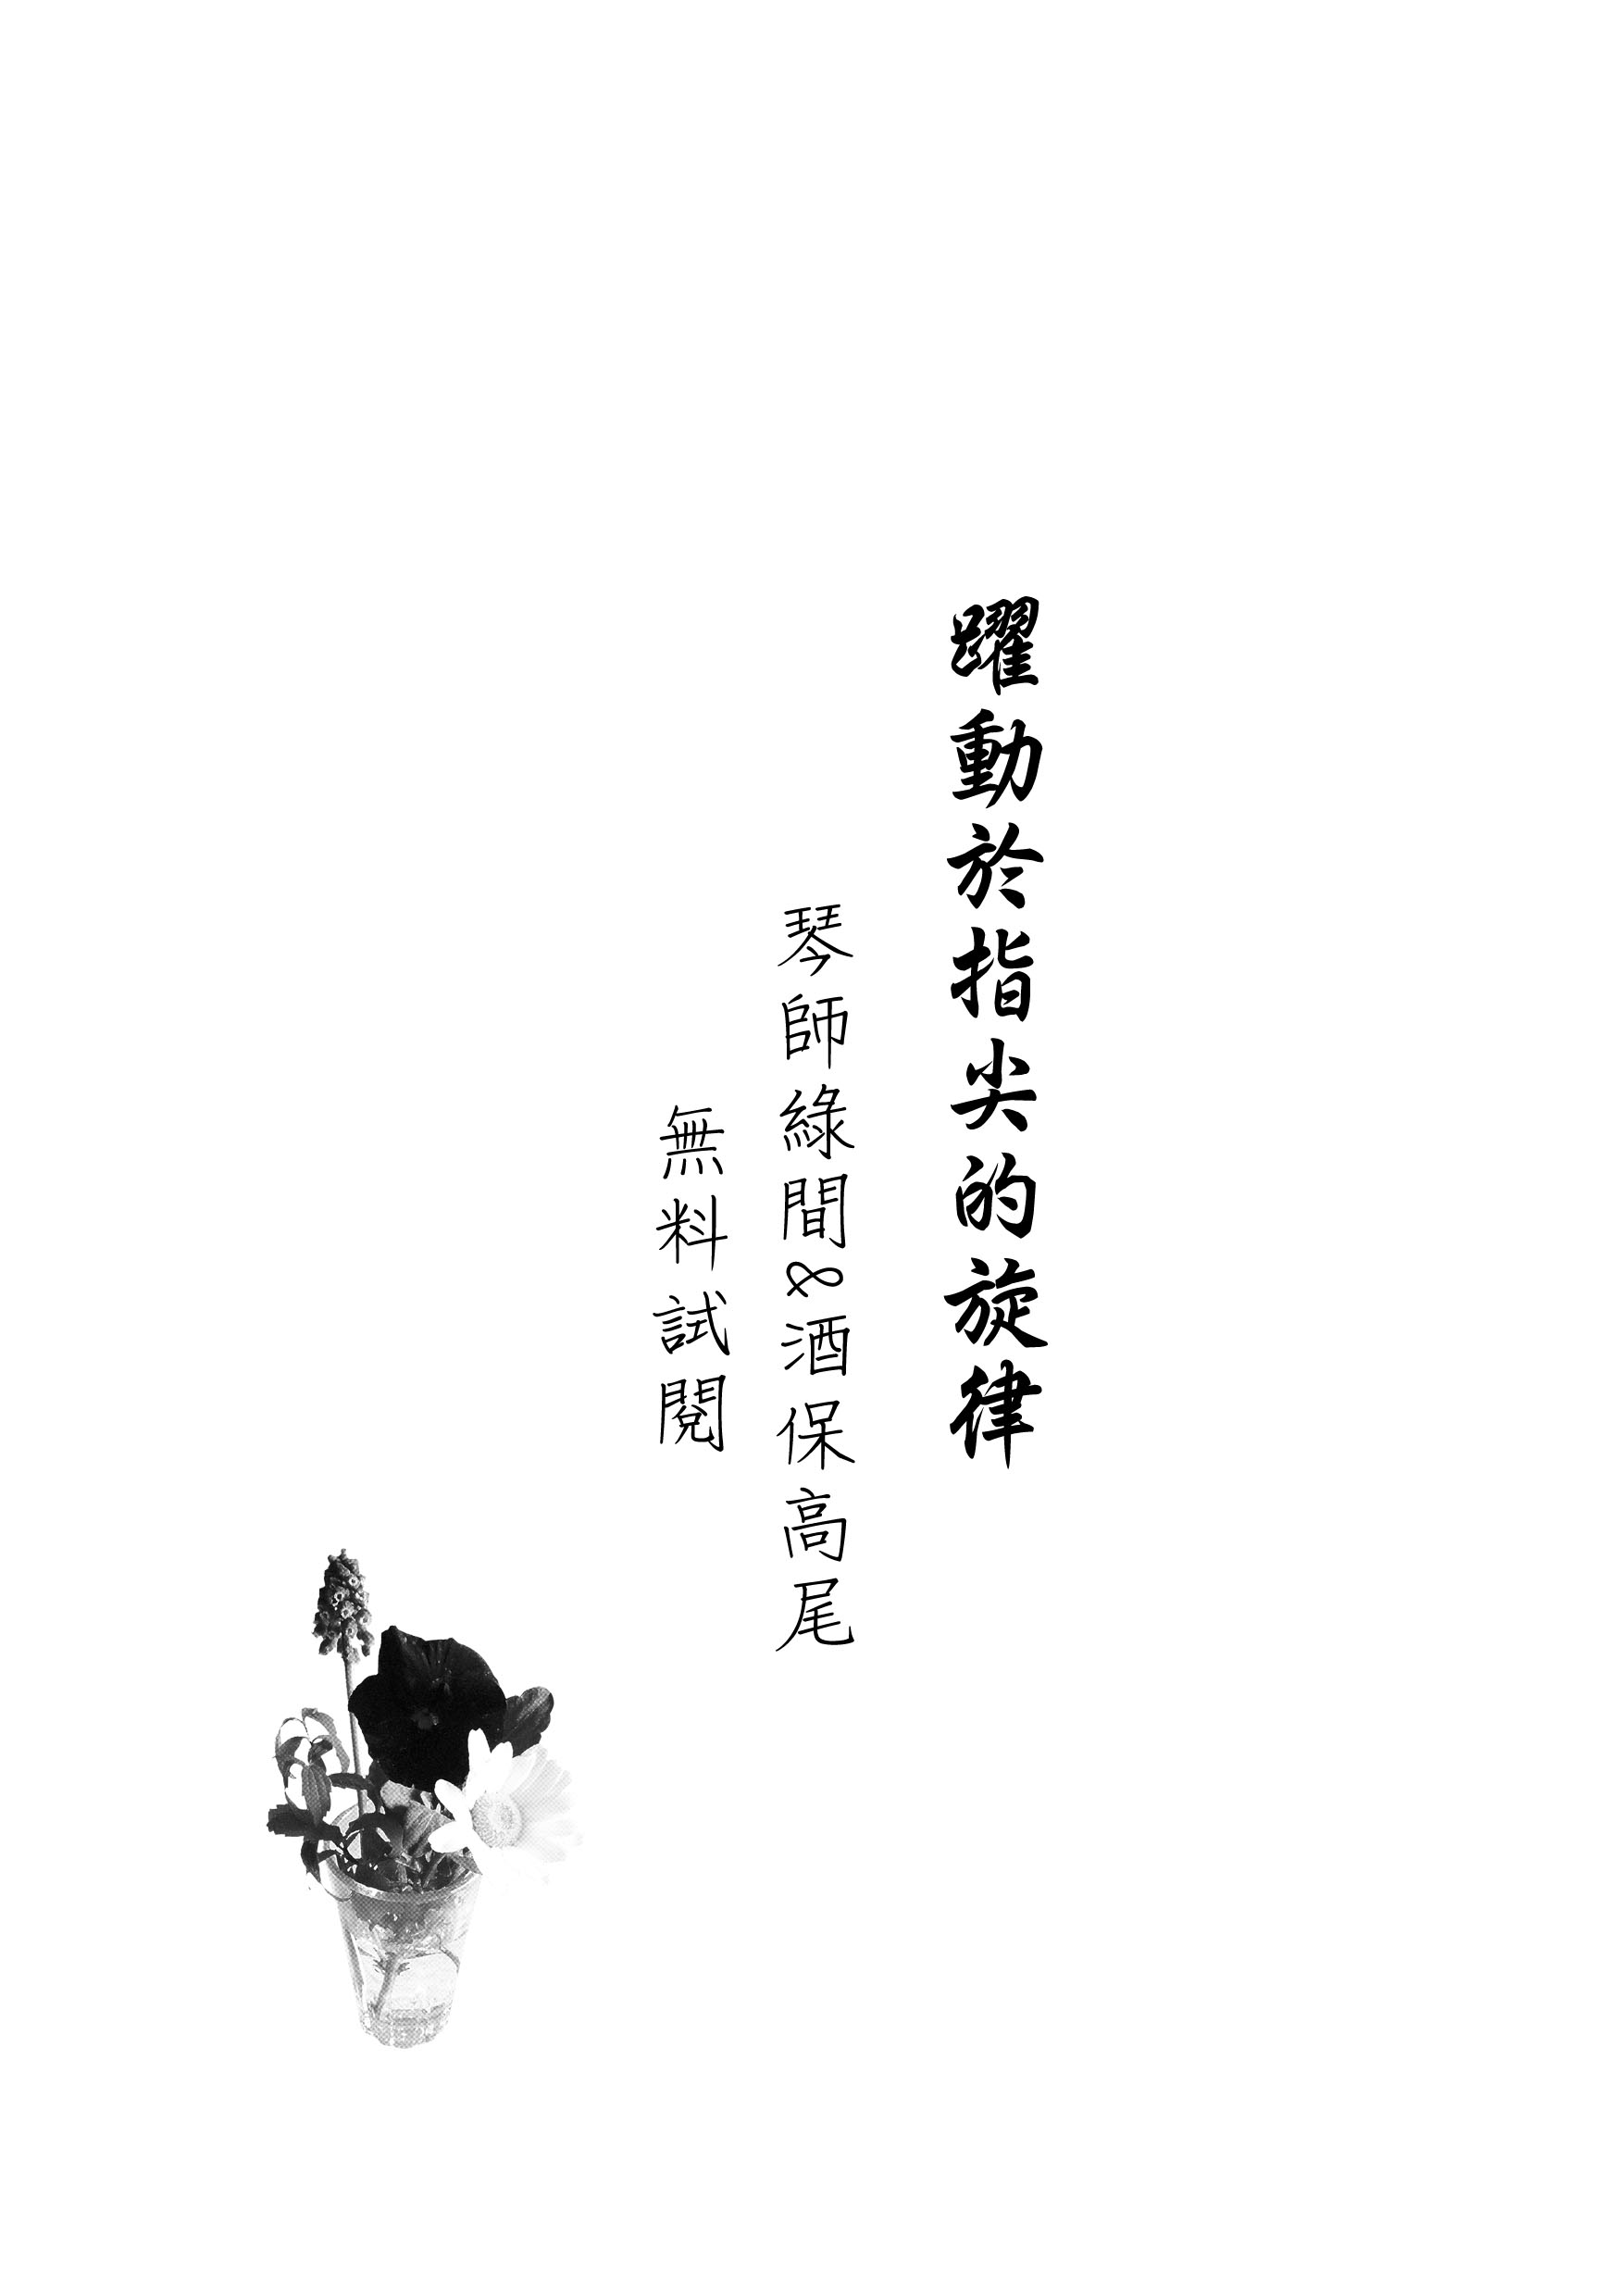 躍動於指尖的旋律
琴師綠間&酒保高尾
無料試閱